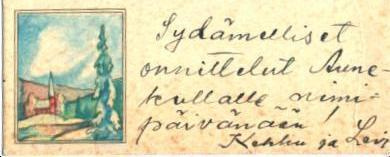 Sydämelliset
onnittelut Aune-
kullalle nimi-
päivänään!
ja